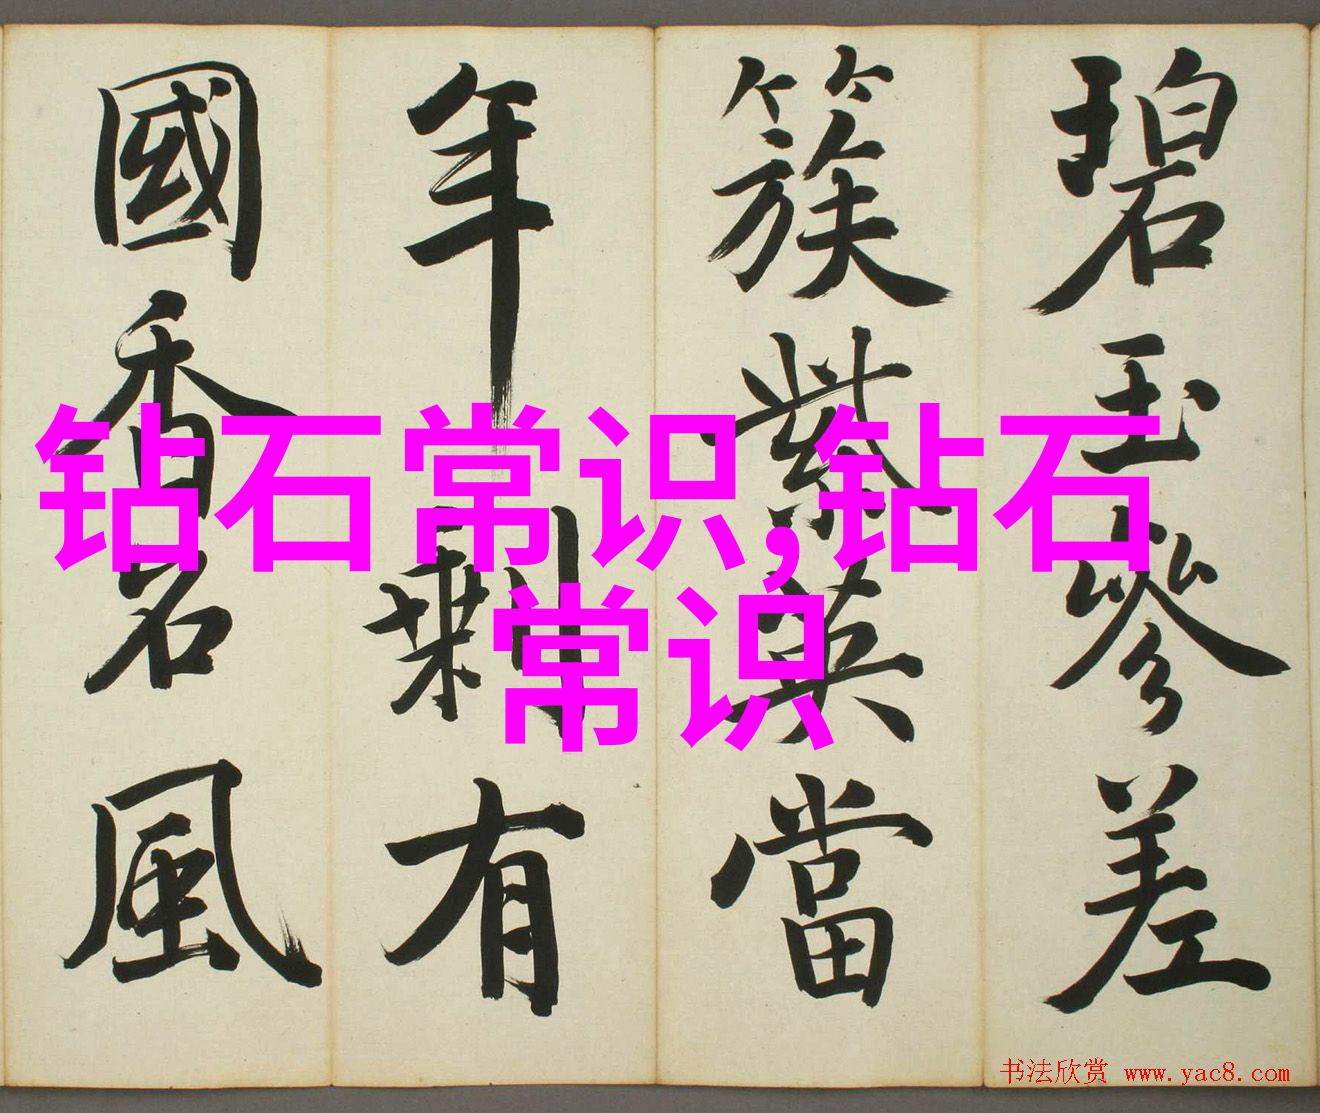 碧玉參差
簇紫英當
年剩有
國香名風
钻石常识,钻石
常识
书法欣赏 www.yac8.com